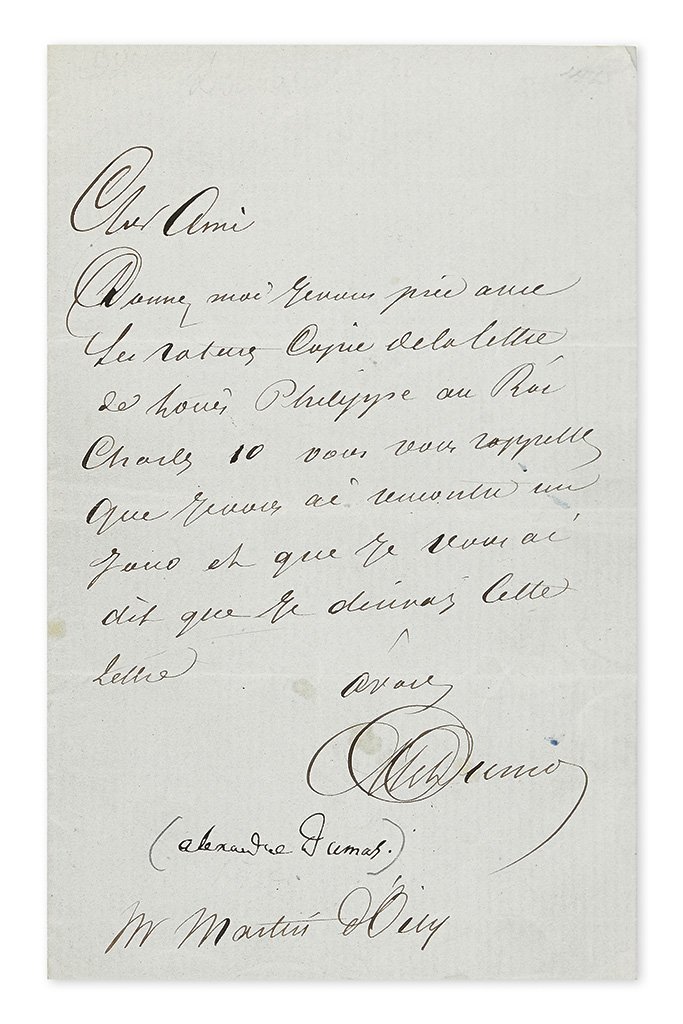 Cher Ami
Donnez moi je vous prie avec
les ratures Copie de la lettre
de Louis Philippe au Roi
Charles 10 vous vous rappellez
que je vous ai rencontré un
jour et que je vous ai
dit que je désirais Cette
lettre
A vous
Alex Dumas
(alexandre Dumas.)
Mr Martin